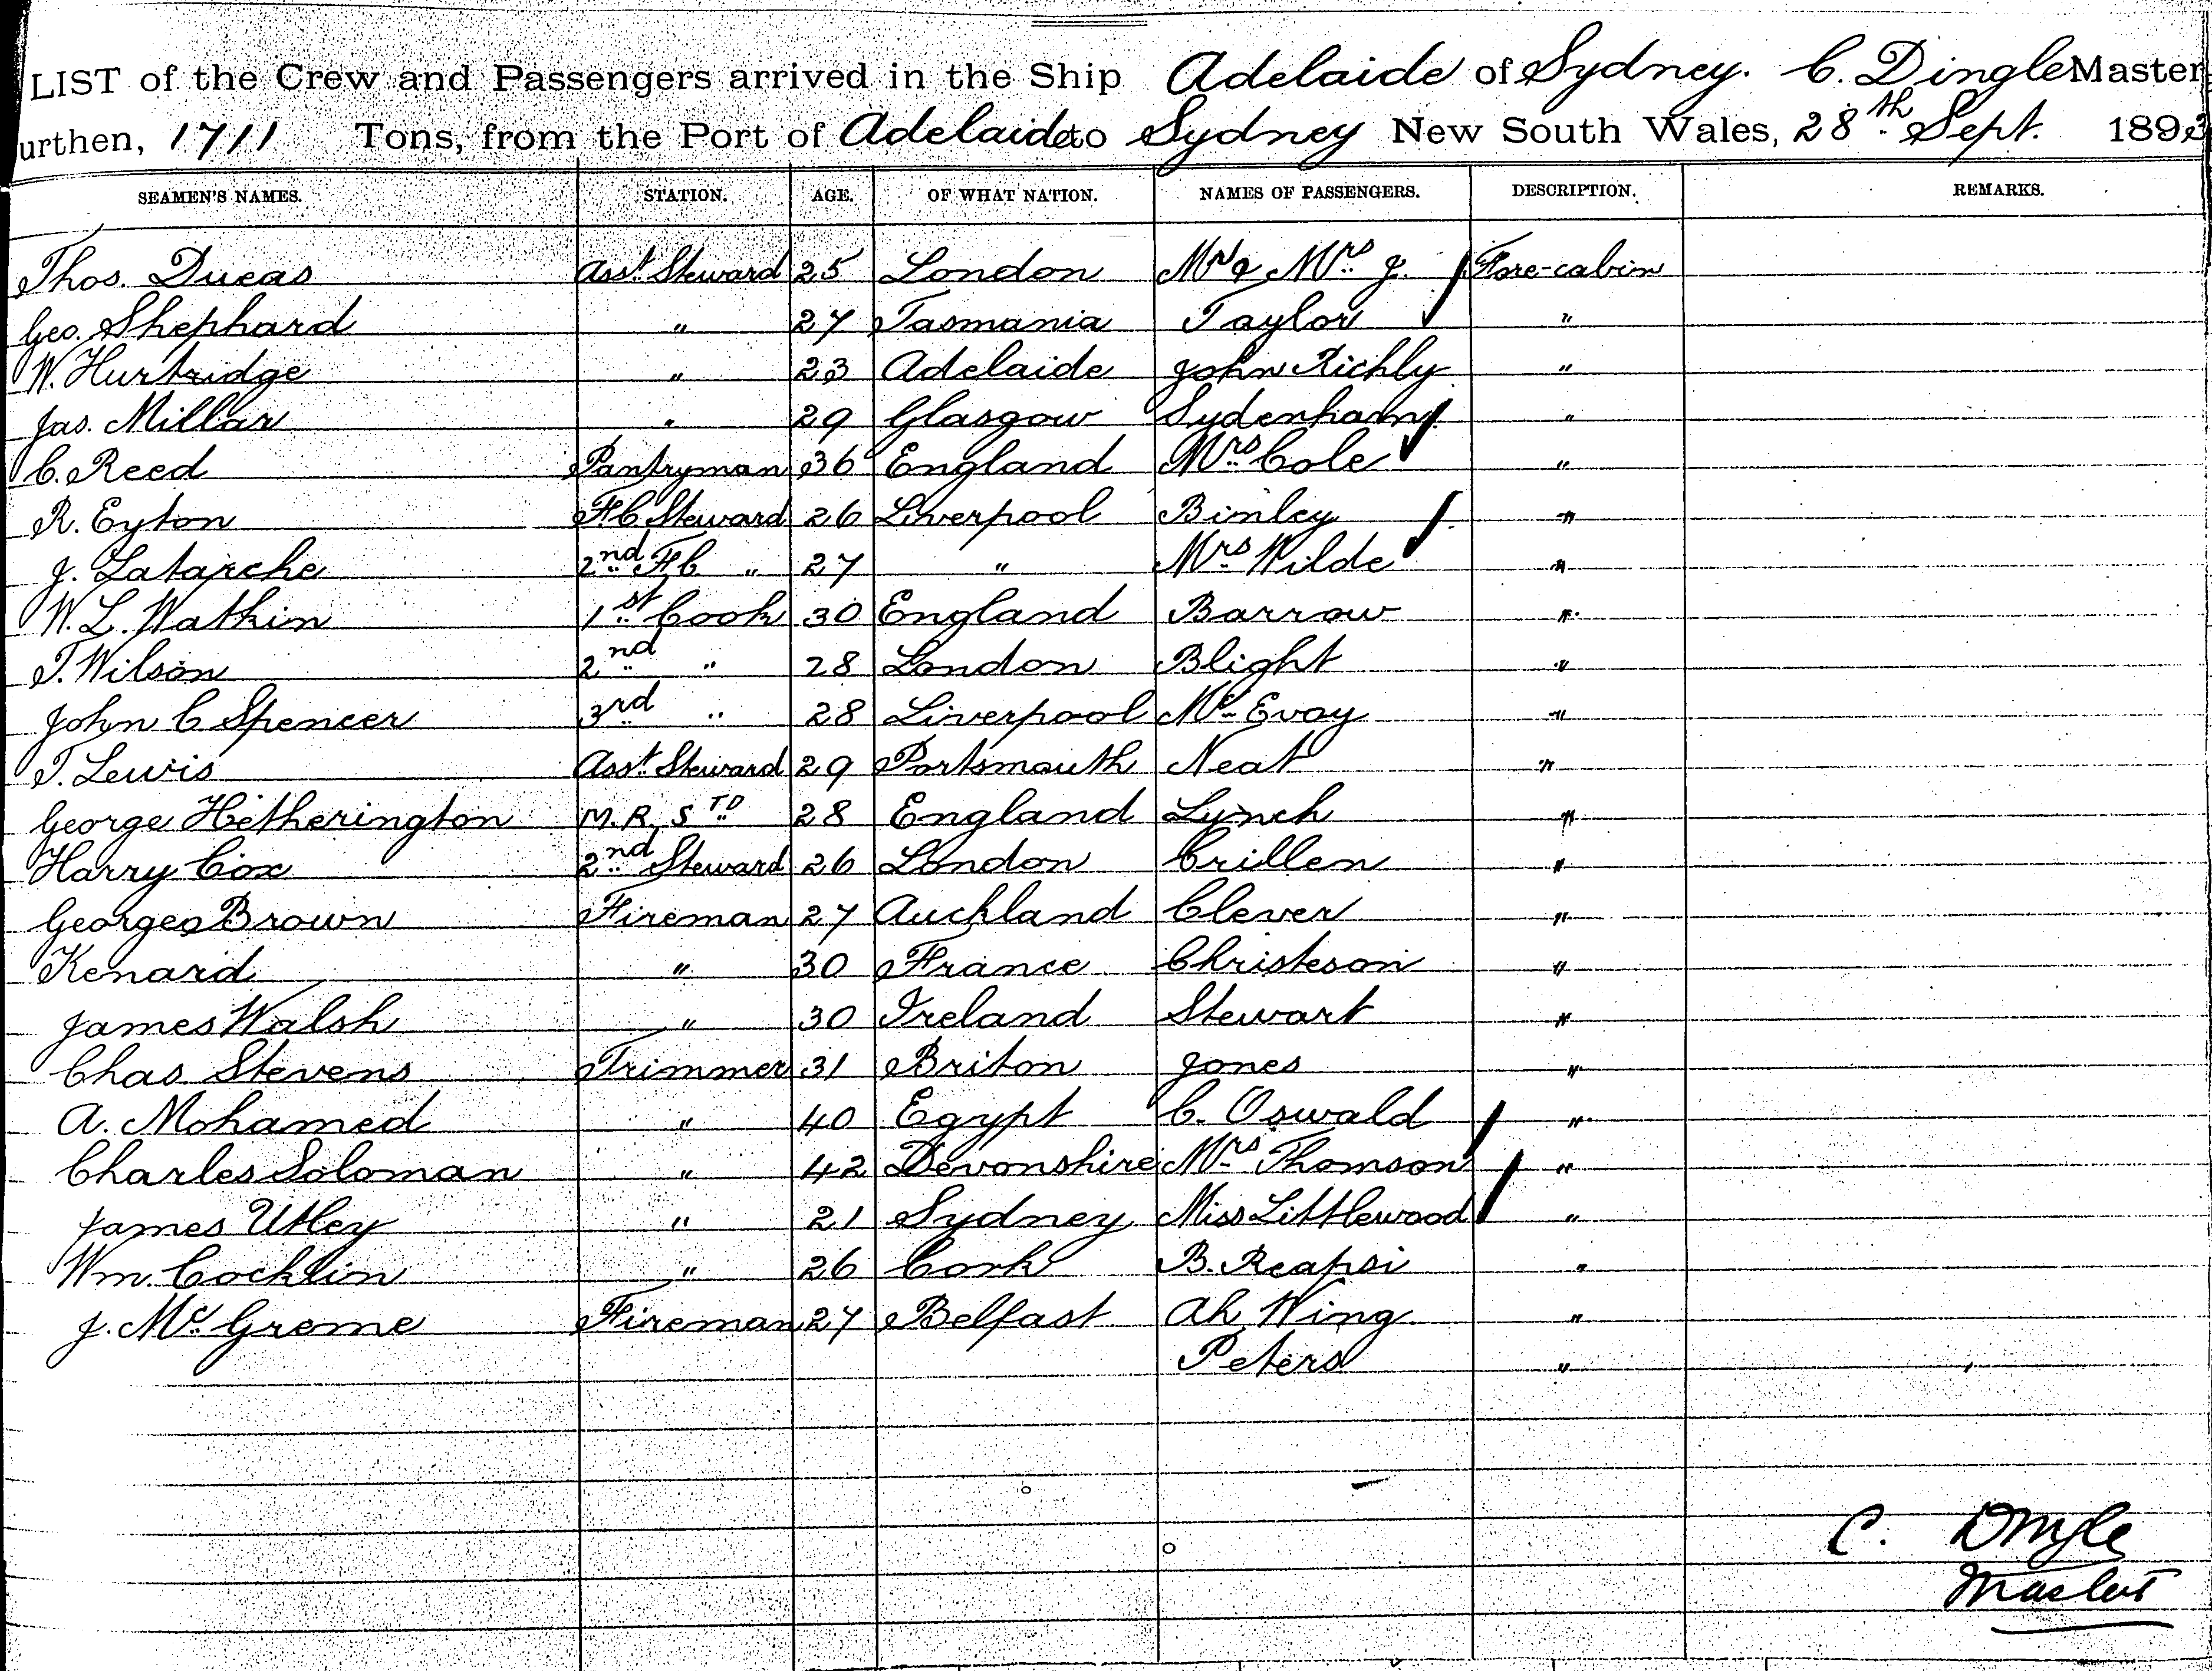 LIST of the Crew and Passengers arrived in the Ship Adelaide of Sydney. C. Dingle Master
urthen, 1711 Tons, from the Port of Adelaide to Sydney New South Wales, 28th Sept. 1893
SEAMEN'S NAMES. STATION. AGE. OF WHAT NATION. NAMES OF PASSENGERS. DESCRIPTION. REMARKS.
Thos. Ducas Asst. Steward 25 London Mr & Mrs J. Fore-cabin
Geo. Shephard " 27 Tasmania Taylor "
W. Hurtridge " 23 Adelaide John Richly "
Jas. Millar " 29 Glasgow Sydenham "
C. Reed Pantryman 36 England Mrs Cole "
R. Eyton F C Steward 26 Liverpool Bimley "
J. Latarche 2nd F C " 27 " Mrs Wilde "
W. L. Watkin 1st Cook 30 England Barrow "
T. Wilson 2nd " 28 London Blight "
John C Spencer 3rd " 28 Liverpool Mc Evoy "
T. Lewis Asst. Steward 29 Portsmouth Neat "
George Hetherington M. R. STD 28 England Lynch "
Harry Cox 2nd Steward 26 London Crillen "
George Brown Fireman 27 Auckland Clever "
Kenard " 30 France Christeson "
James Walsh " 30 Ireland Stewart "
Chas Stevens Trimmer 31 Briton Jones "
A. Mohamed " 40 Egypt C. Oswald "
Charles Soloman " 42 Devonshire Mrs Thomson "
James Utley " 21 Sydney Miss Littlewood "
Wm. Cocklin " 26 Cork B. Reapsi "
J. Mc Greme Fireman 27 Belfast Ah Wing "
Peters "
C. Dingle
Master